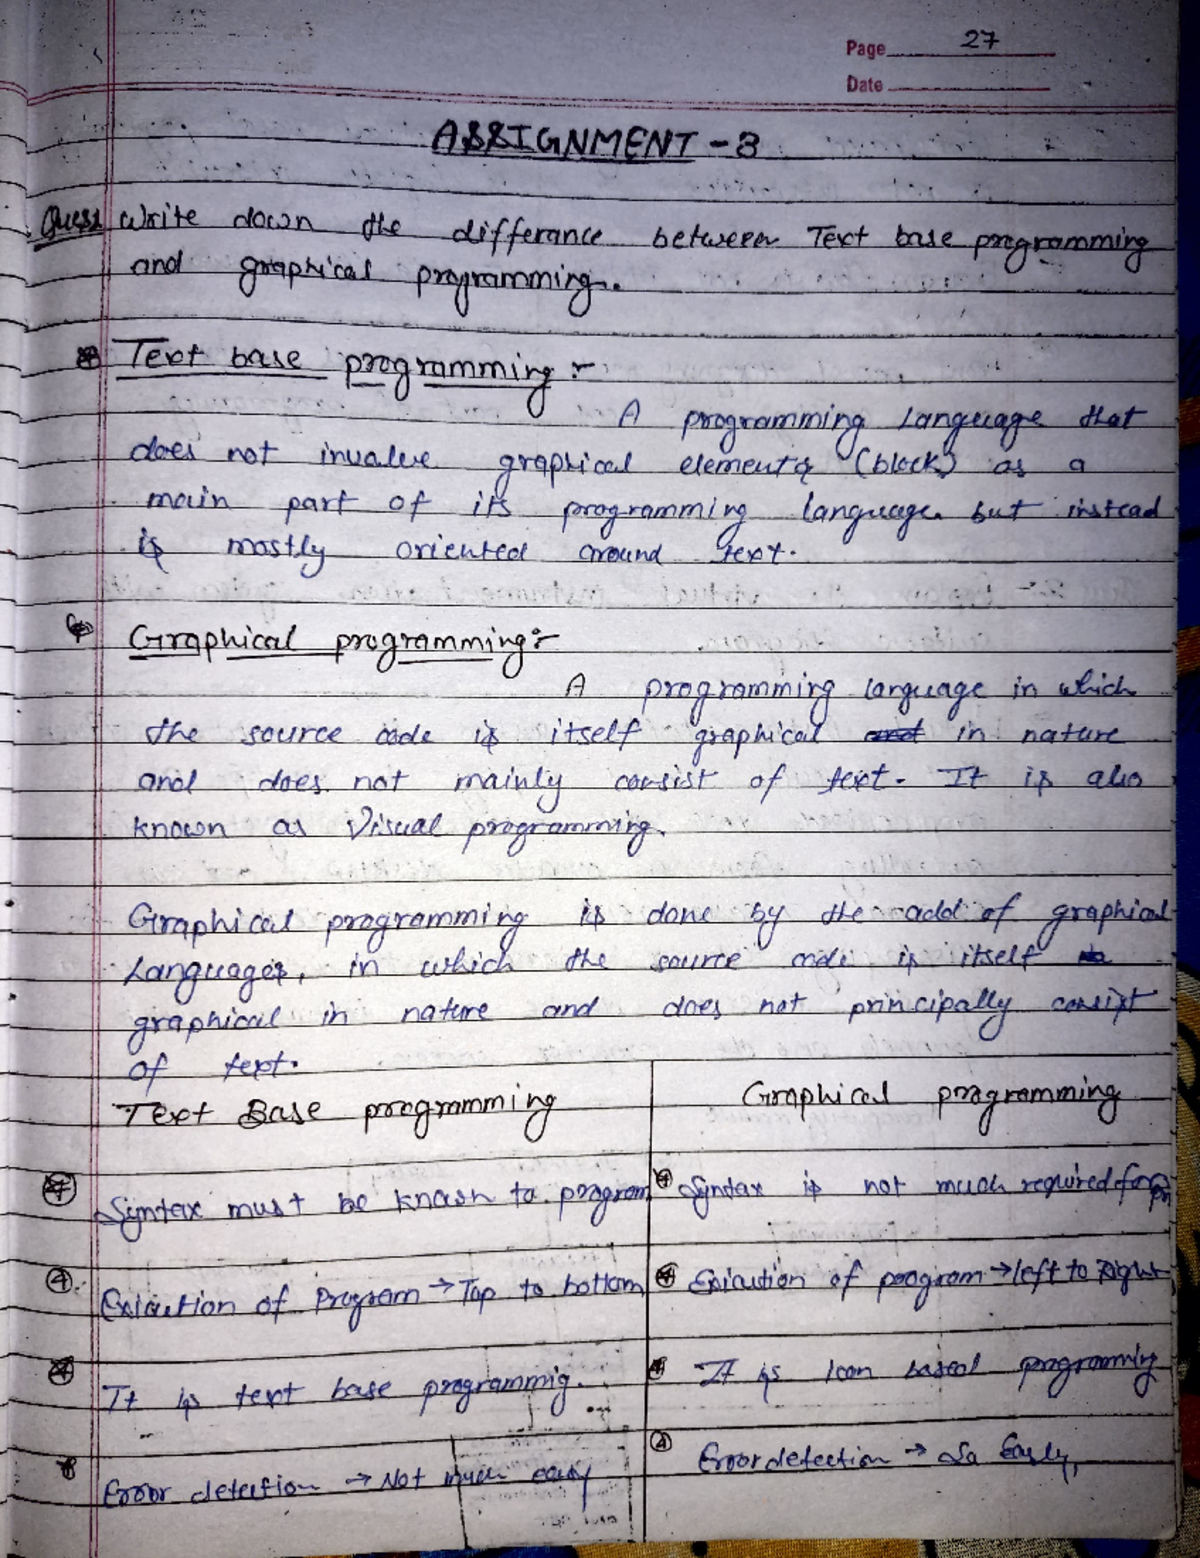 Page 27
Date
ASSIGNMENT - 3
Ques1 Write down the differance between Text base programming
and graphical programming.
Text base programming :-
A programming Language that
does not invalve graphical elements (block) as a
main part of its programming language but instead
is mostly oriented around text.
Graphical programming :-
A programming language in which
the source code is itself graphical in nature
and does not mainly consist of text. It is also
known as Visual programming.
Graphical programming is done by the add of graphical
Languages, in which the source code is itself
graphical in nature and does not principally consist
of text.
Text Base programming
Graphical programming
Syntax must be known to program
Syntax is not much required for
Exicution of Program → Top to bottom
Exicution of program → left to right
It is text base programmig.
It is Icon based programming
Error detection → Not much easy
Error detection → So Easly,